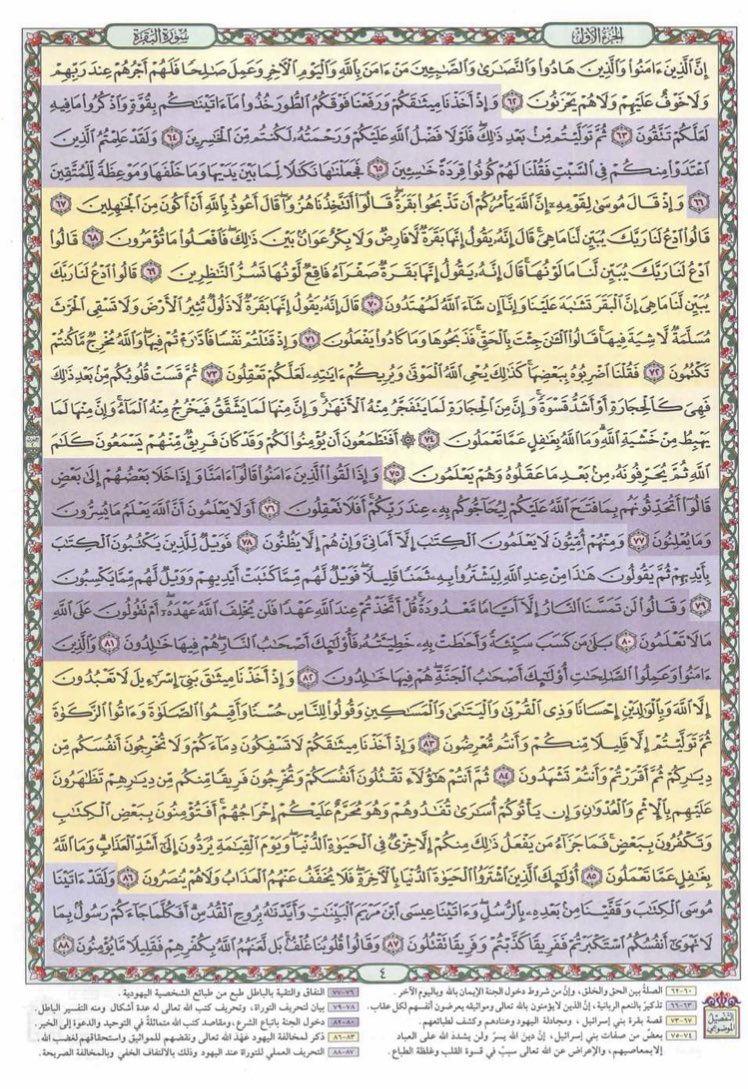 الجزء الأول
سورة البقرة
إِنَّ الَّذِينَ ءَامَنُوا وَالَّذِينَ هَادُوا وَالنَّصَارَىٰ وَالصَّابِئِينَ مَنْ ءَامَنَ بِاللَّهِ وَالْيَوْمِ الْآخِرِ وَعَمِلَ صَالِحًا فَلَهُمْ أَجْرُهُمْ عِندَ رَبِّهِمْ
وَلَا خَوْفٌ عَلَيْهِمْ وَلَا هُمْ يَحْزَنُونَ ٦٢ وَإِذْ أَخَذْنَا مِيثَاقَكُمْ وَرَفَعْنَا فَوْقَكُمُ الطُّورَ خُذُوا مَا ءَاتَيْنَاكُم بِقُوَّةٍ وَاذْكُرُوا مَا فِيهِ
لَعَلَّكُمْ تَتَّقُونَ ٦٣ ثُمَّ تَوَلَّيْتُم مِّن بَعْدِ ذَٰلِكَ فَلَوْلَا فَضْلُ اللَّهِ عَلَيْكُمْ وَرَحْمَتُهُ لَكُنتُم مِّنَ الْخَاسِرِينَ ٦٤ وَلَقَدْ عَلِمْتُمُ الَّذِينَ
اعْتَدَوْا مِنكُمْ فِي السَّبْتِ فَقُلْنَا لَهُمْ كُونُوا قِرَدَةً خَاسِئِينَ ٦٥ فَجَعَلْنَاهَا نَكَالًا لِّمَا بَيْنَ يَدَيْهَا وَمَا خَلْفَهَا وَمَوْعِظَةً لِّلْمُتَّقِينَ
٦٦ وَإِذْ قَالَ مُوسَىٰ لِقَوْمِهِ إِنَّ اللَّهَ يَأْمُرُكُمْ أَن تَذْبَحُوا بَقَرَةً قَالُوا أَتَتَّخِذُنَا هُزُوًا قَالَ أَعُوذُ بِاللَّهِ أَنْ أَكُونَ مِنَ الْجَاهِلِينَ ٦٧
قَالُوا ادْعُ لَنَا رَبَّكَ يُبَيِّن لَّنَا مَا هِيَ قَالَ إِنَّهُ يَقُولُ إِنَّهَا بَقَرَةٌ لَّا فَارِضٌ وَلَا بِكْرٌ عَوَانٌ بَيْنَ ذَٰلِكَ فَافْعَلُوا مَا تُؤْمَرُونَ ٦٨ قَالُوا
ادْعُ لَنَا رَبَّكَ يُبَيِّن لَّنَا مَا لَوْنُهَا قَالَ إِنَّهُ يَقُولُ إِنَّهَا بَقَرَةٌ صَفْرَاءُ فَاقِعٌ لَّوْنُهَا تَسُرُّ النَّاظِرِينَ ٦٩ قَالُوا ادْعُ لَنَا رَبَّكَ
يُبَيِّن لَّنَا مَا هِيَ إِنَّ الْبَقَرَ تَشَابَهَ عَلَيْنَا وَإِنَّا إِن شَاءَ اللَّهُ لَمُهْتَدُونَ ٧٠ قَالَ إِنَّهُ يَقُولُ إِنَّهَا بَقَرَةٌ لَّا ذَلُولٌ تُثِيرُ الْأَرْضَ وَلَا تَسْقِي الْحَرْثَ
مُسَلَّمَةٌ لَّا شِيَةَ فِيهَا قَالُوا الْآنَ جِئْتَ بِالْحَقِّ فَذَبَحُوهَا وَمَا كَادُوا يَفْعَلُونَ ٧١ وَإِذْ قَتَلْتُمْ نَفْسًا فَادَّارَأْتُمْ فِيهَا وَاللَّهُ مُخْرِجٌ مَّا كُنتُمْ
تَكْتُمُونَ ٧٢ فَقُلْنَا اضْرِبُوهُ بِبَعْضِهَا كَذَٰلِكَ يُحْيِ اللَّهُ الْمَوْتَىٰ وَيُرِيكُمْ ءَايَاتِهِ لَعَلَّكُمْ تَعْقِلُونَ ٧٣ ثُمَّ قَسَتْ قُلُوبُكُم مِّن بَعْدِ ذَٰلِكَ
فَهِيَ كَالْحِجَارَةِ أَوْ أَشَدُّ قَسْوَةً وَإِنَّ مِنَ الْحِجَارَةِ لَمَا يَتَفَجَّرُ مِنْهُ الْأَنْهَارُ وَإِنَّ مِنْهَا لَمَا يَشَّقَّقُ فَيَخْرُجُ مِنْهُ الْمَاءُ وَإِنَّ مِنْهَا لَمَا
يَهْبِطُ مِنْ خَشْيَةِ اللَّهِ وَمَا اللَّهُ بِغَافِلٍ عَمَّا تَعْمَلُونَ ٧٤ ۞ أَفَتَطْمَعُونَ أَن يُؤْمِنُوا لَكُمْ وَقَدْ كَانَ فَرِيقٌ مِّنْهُمْ يَسْمَعُونَ كَلَامَ
اللَّهِ ثُمَّ يُحَرِّفُونَهُ مِن بَعْدِ مَا عَقَلُوهُ وَهُمْ يَعْلَمُونَ ٧٥ وَإِذَا لَقُوا الَّذِينَ ءَامَنُوا قَالُوا ءَامَنَّا وَإِذَا خَلَا بَعْضُهُمْ إِلَىٰ بَعْضٍ
قَالُوا أَتُحَدِّثُونَهُم بِمَا فَتَحَ اللَّهُ عَلَيْكُمْ لِيُحَاجُّوكُم بِهِ عِندَ رَبِّكُمْ أَفَلَا تَعْقِلُونَ ٧٦ أَوَلَا يَعْلَمُونَ أَنَّ اللَّهَ يَعْلَمُ مَا يُسِرُّونَ
وَمَا يُعْلِنُونَ ٧٧ وَمِنْهُمْ أُمِّيُّونَ لَا يَعْلَمُونَ الْكِتَابَ إِلَّا أَمَانِيَّ وَإِنْ هُمْ إِلَّا يَظُنُّونَ ٧٨ فَوَيْلٌ لِّلَّذِينَ يَكْتُبُونَ الْكِتَابَ
بِأَيْدِيهِمْ ثُمَّ يَقُولُونَ هَٰذَا مِنْ عِندِ اللَّهِ لِيَشْتَرُوا بِهِ ثَمَنًا قَلِيلًا فَوَيْلٌ لَّهُم مِّمَّا كَتَبَتْ أَيْدِيهِمْ وَوَيْلٌ لَّهُم مِّمَّا يَكْسِبُونَ
٧٩ وَقَالُوا لَن تَمَسَّنَا النَّارُ إِلَّا أَيَّامًا مَّعْدُودَةً قُلْ أَتَّخَذْتُمْ عِندَ اللَّهِ عَهْدًا فَلَن يُخْلِفَ اللَّهُ عَهْدَهُ أَمْ تَقُولُونَ عَلَى اللَّهِ
مَا لَا تَعْلَمُونَ ٨٠ بَلَىٰ مَن كَسَبَ سَيِّئَةً وَأَحَاطَتْ بِهِ خَطِيئَتُهُ فَأُولَٰئِكَ أَصْحَابُ النَّارِ هُمْ فِيهَا خَالِدُونَ ٨١ وَالَّذِينَ
ءَامَنُوا وَعَمِلُوا الصَّالِحَاتِ أُولَٰئِكَ أَصْحَابُ الْجَنَّةِ هُمْ فِيهَا خَالِدُونَ ٨٢ وَإِذْ أَخَذْنَا مِيثَاقَ بَنِي إِسْرَائِيلَ لَا تَعْبُدُونَ
إِلَّا اللَّهَ وَبِالْوَالِدَيْنِ إِحْسَانًا وَذِي الْقُرْبَىٰ وَالْيَتَامَىٰ وَالْمَسَاكِينِ وَقُولُوا لِلنَّاسِ حُسْنًا وَأَقِيمُوا الصَّلَاةَ وَءَاتُوا الزَّكَاةَ
ثُمَّ تَوَلَّيْتُمْ إِلَّا قَلِيلًا مِّنكُمْ وَأَنتُم مُّعْرِضُونَ ٨٣ وَإِذْ أَخَذْنَا مِيثَاقَكُمْ لَا تَسْفِكُونَ دِمَاءَكُمْ وَلَا تُخْرِجُونَ أَنفُسَكُم مِّن
دِيَارِكُمْ ثُمَّ أَقْرَرْتُمْ وَأَنتُمْ تَشْهَدُونَ ٨٤ ثُمَّ أَنتُمْ هَٰؤُلَاءِ تَقْتُلُونَ أَنفُسَكُمْ وَتُخْرِجُونَ فَرِيقًا مِّنكُم مِّن دِيَارِهِمْ تَظَاهَرُونَ
عَلَيْهِم بِالْإِثْمِ وَالْعُدْوَانِ وَإِن يَأْتُوكُمْ أُسَارَىٰ تُفَادُوهُمْ وَهُوَ مُحَرَّمٌ عَلَيْكُمْ إِخْرَاجُهُمْ أَفَتُؤْمِنُونَ بِبَعْضِ الْكِتَابِ
وَتَكْفُرُونَ بِبَعْضٍ فَمَا جَزَاءُ مَن يَفْعَلُ ذَٰلِكَ مِنكُمْ إِلَّا خِزْيٌ فِي الْحَيَاةِ الدُّنْيَا وَيَوْمَ الْقِيَامَةِ يُرَدُّونَ إِلَىٰ أَشَدِّ الْعَذَابِ وَمَا اللَّهُ
بِغَافِلٍ عَمَّا تَعْمَلُونَ ٨٥ أُولَٰئِكَ الَّذِينَ اشْتَرَوُا الْحَيَاةَ الدُّنْيَا بِالْآخِرَةِ فَلَا يُخَفَّفُ عَنْهُمُ الْعَذَابُ وَلَا هُمْ يُنصَرُونَ ٨٦ وَلَقَدْ ءَاتَيْنَا
مُوسَى الْكِتَابَ وَقَفَّيْنَا مِن بَعْدِهِ بِالرُّسُلِ وَءَاتَيْنَا عِيسَى ابْنَ مَرْيَمَ الْبَيِّنَاتِ وَأَيَّدْنَاهُ بِرُوحِ الْقُدُسِ أَفَكُلَّمَا جَاءَكُمْ رَسُولٌ بِمَا
لَا تَهْوَىٰ أَنفُسُكُمُ اسْتَكْبَرْتُمْ فَفَرِيقًا كَذَّبْتُمْ وَفَرِيقًا تَقْتُلُونَ ٨٧ وَقَالُوا قُلُوبُنَا غُلْفٌ بَل لَّعَنَهُمُ اللَّهُ بِكُفْرِهِمْ فَقَلِيلًا مَّا يُؤْمِنُونَ ٨٨
٤
التفصيل الموضوعي
٦٠-٦٢ الصلة بين الحق والخلق، وإنّ من شروط دخول الجنة الإيمان بالله وباليوم الآخر.
٦٣-٦٦ تذكيرٌ بالنعم الربانية، إنّ الذين لا يؤمنون بالله تعالى ومواثيقه يعرضون أنفسهم لكل عقاب.
٦٧-٧٣ قصة بقرة بني إسرائيل، ومجادلة اليهود وعنادهم وكشف لطبائعهم.
٧٤-٧٥ بعضٌ من صفات بني إسرائيل، إنّ دين الله يسرٌ ولن يشدد الله على العباد
إلا بمعاصيهم، والإعراض عن الله تعالى سببٌ في قسوة القلب وغلظة الطباع.
٧٦-٧٧ النفاق والتقية بالباطل طبع من طبائع الشخصية اليهودية.
٧٨-٧٩ بيان لتحريف التوراة، وتحريف كتب الله تعالى له عدة أشكال ومنه التفسير الباطل.
٨٠-٨٢ دخول الجنة باتباع الشرع، ومقاصد كتب الله متماثلة في التوحيد والدعوة إلى الخير.
٨٣-٨٦ ذكر لمخالفة اليهود عهد الله تعالى ونقضهم للمواثيق واستحقاقهم لغضب الله.
٨٧-٨٨ التحريف العملي للتوراة عند اليهود وذلك بالالتفاف الخفي وبالمخالفة الصريحة.